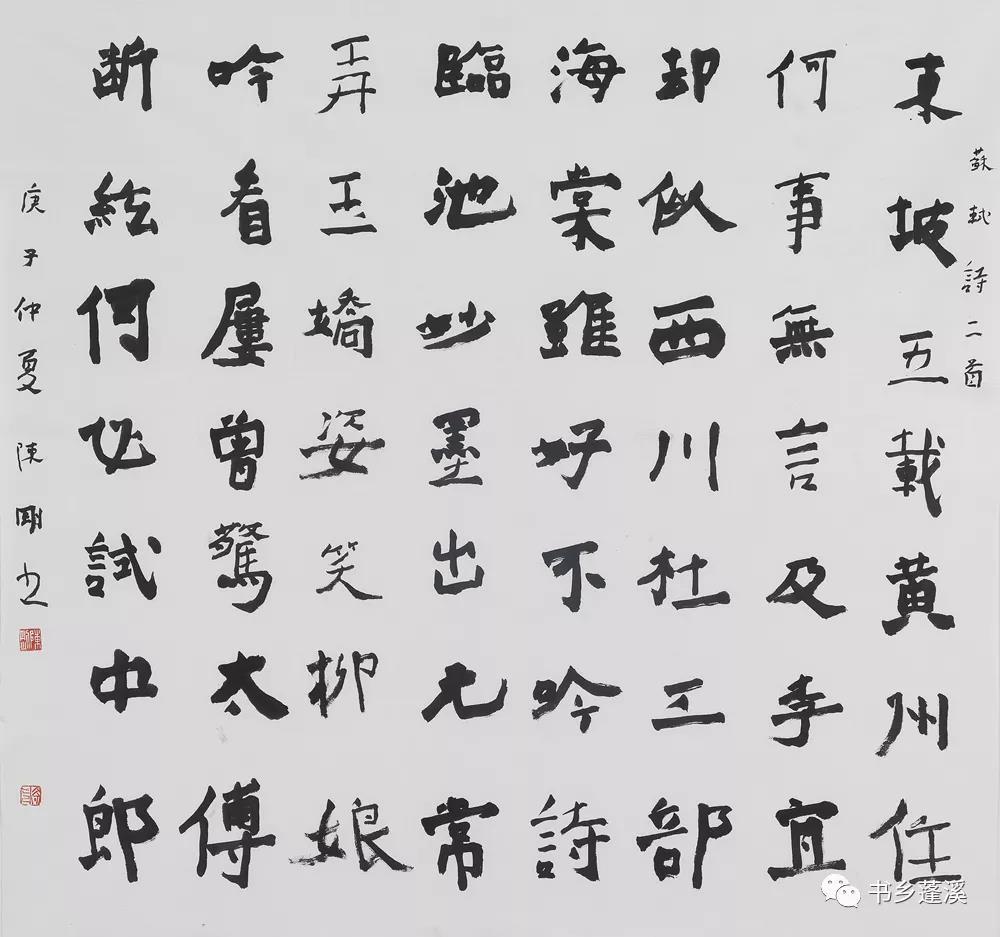 蘇軾詩二首
東坡五載黄州住
何事無言及李宜
却似西川杜工部
海棠雖好不吟詩
臨池妙墨出元常
弄玉嬌姿笑柳娘
吟看屢曾驚太傅
断絃何必試中郎
庚子仲夏 陳剛书
书乡蓬溪